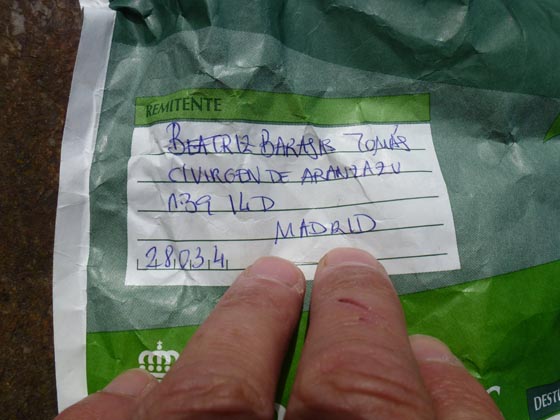 REMITENTE
BEATRIZ BARAJAS TOMÁS
C/VIRGEN DE ARANZAZU
139 14D
MADRID
28034
DEST